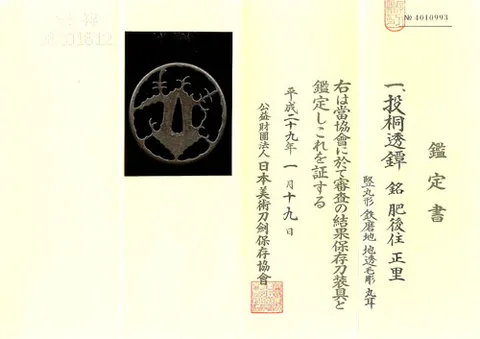 № 4010993
鑑定書
一、投桐透鐔 銘 肥後住 正里
竪丸形 鉄磨地 地透毛彫 丸耳
右は當協會に於て審査の結果保存刀装具と
鑑定しこれを証する
平成二十九年 一月十九日
公益財團法人 日本美術刀劍保存協會